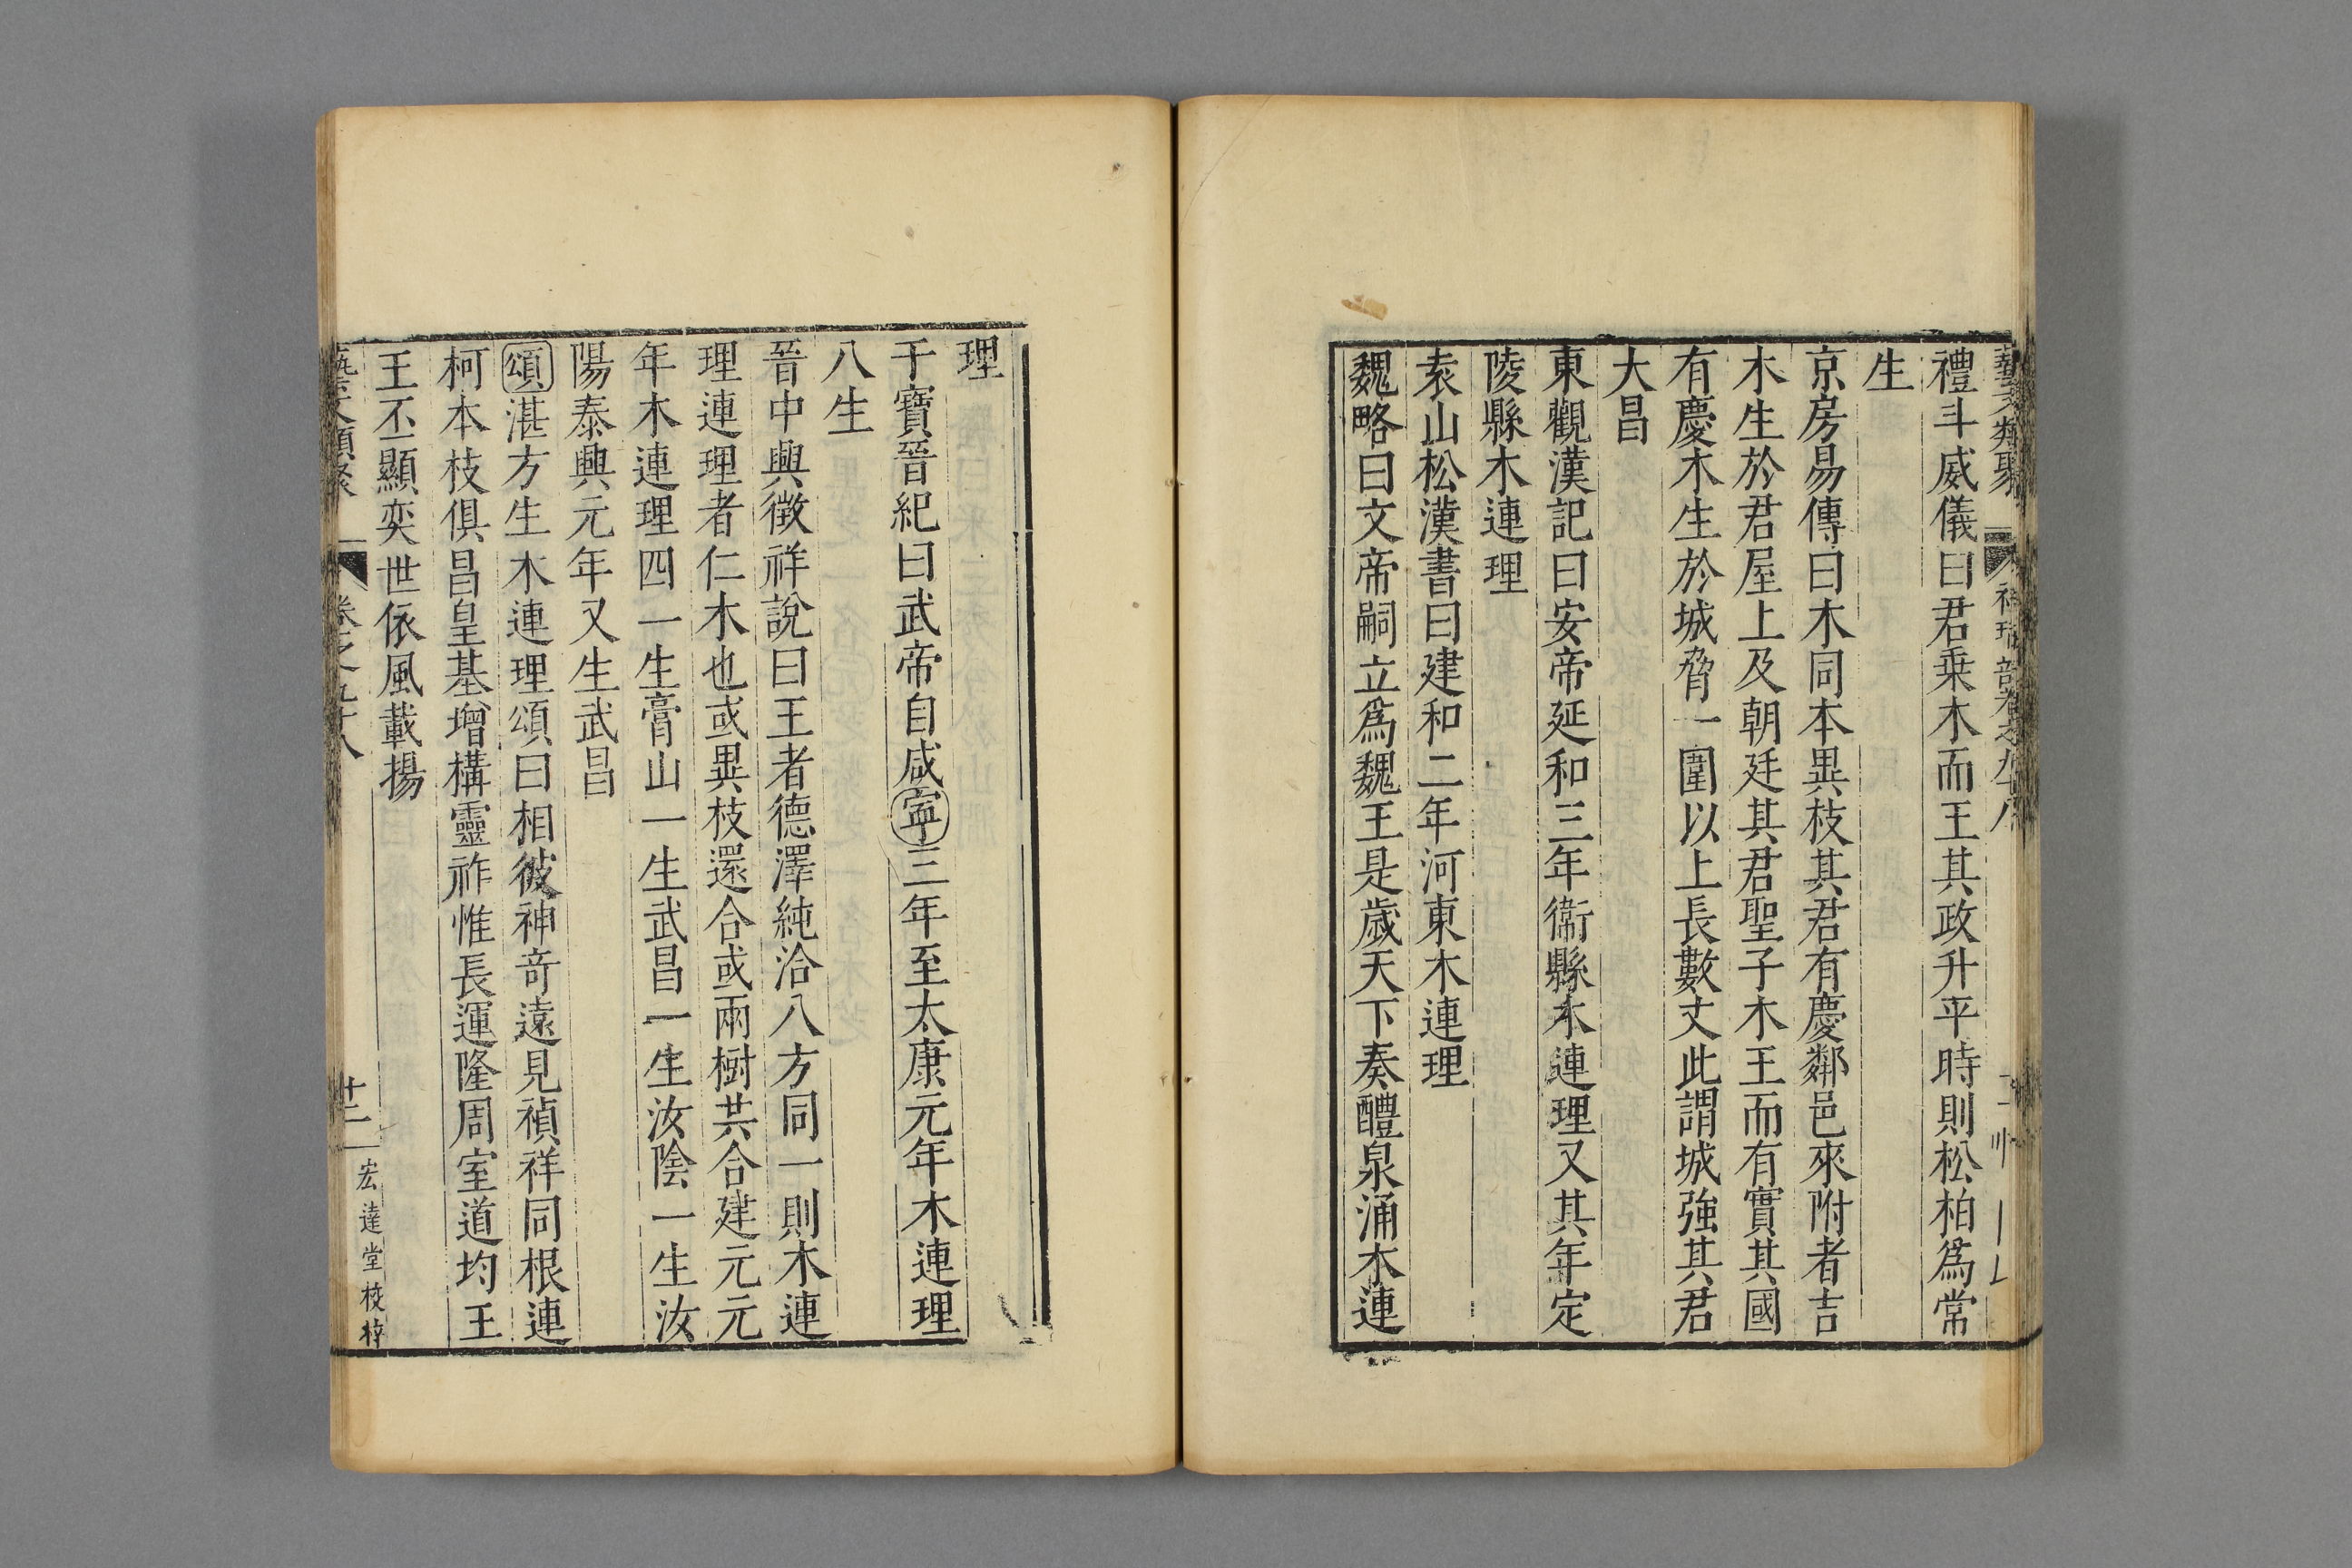 禮斗威儀曰君乗木而王其政升平時則松柏爲常
生
京房易傳曰木同本異枝其君有慶鄰邑來附者吉
木生於君屋上及朝廷其君聖子木王而有實其國
有慶木生於城脅一圍以上長數丈此謂城強其君
大昌
東觀漢記曰安帝延和三年衞縣木連理又其年定
陵縣木連理
袁山松漢書曰建和二年河東木連理
魏略曰文帝嗣立爲魏王是歲天下奏醴泉涌木連
理
干寶晉紀曰武帝自咸寧三年至太康元年木連理
八生
晉中興徵祥說曰王者德澤純洽八方同一則木連
理連理者仁木也或異枝還合或兩樹共合建元元
年木連理四一生膏山一生武昌一生汝陰一生汝
陽泰興元年又生武昌
頌湛方生木連理頌曰相彼神奇遠見禎祥同根連
柯本枝俱昌皇基增構靈祚惟長運隆周室道均王
王丕顯奕世依風載揚
藝文類聚 卷之九十八 十二 宏達堂校梓